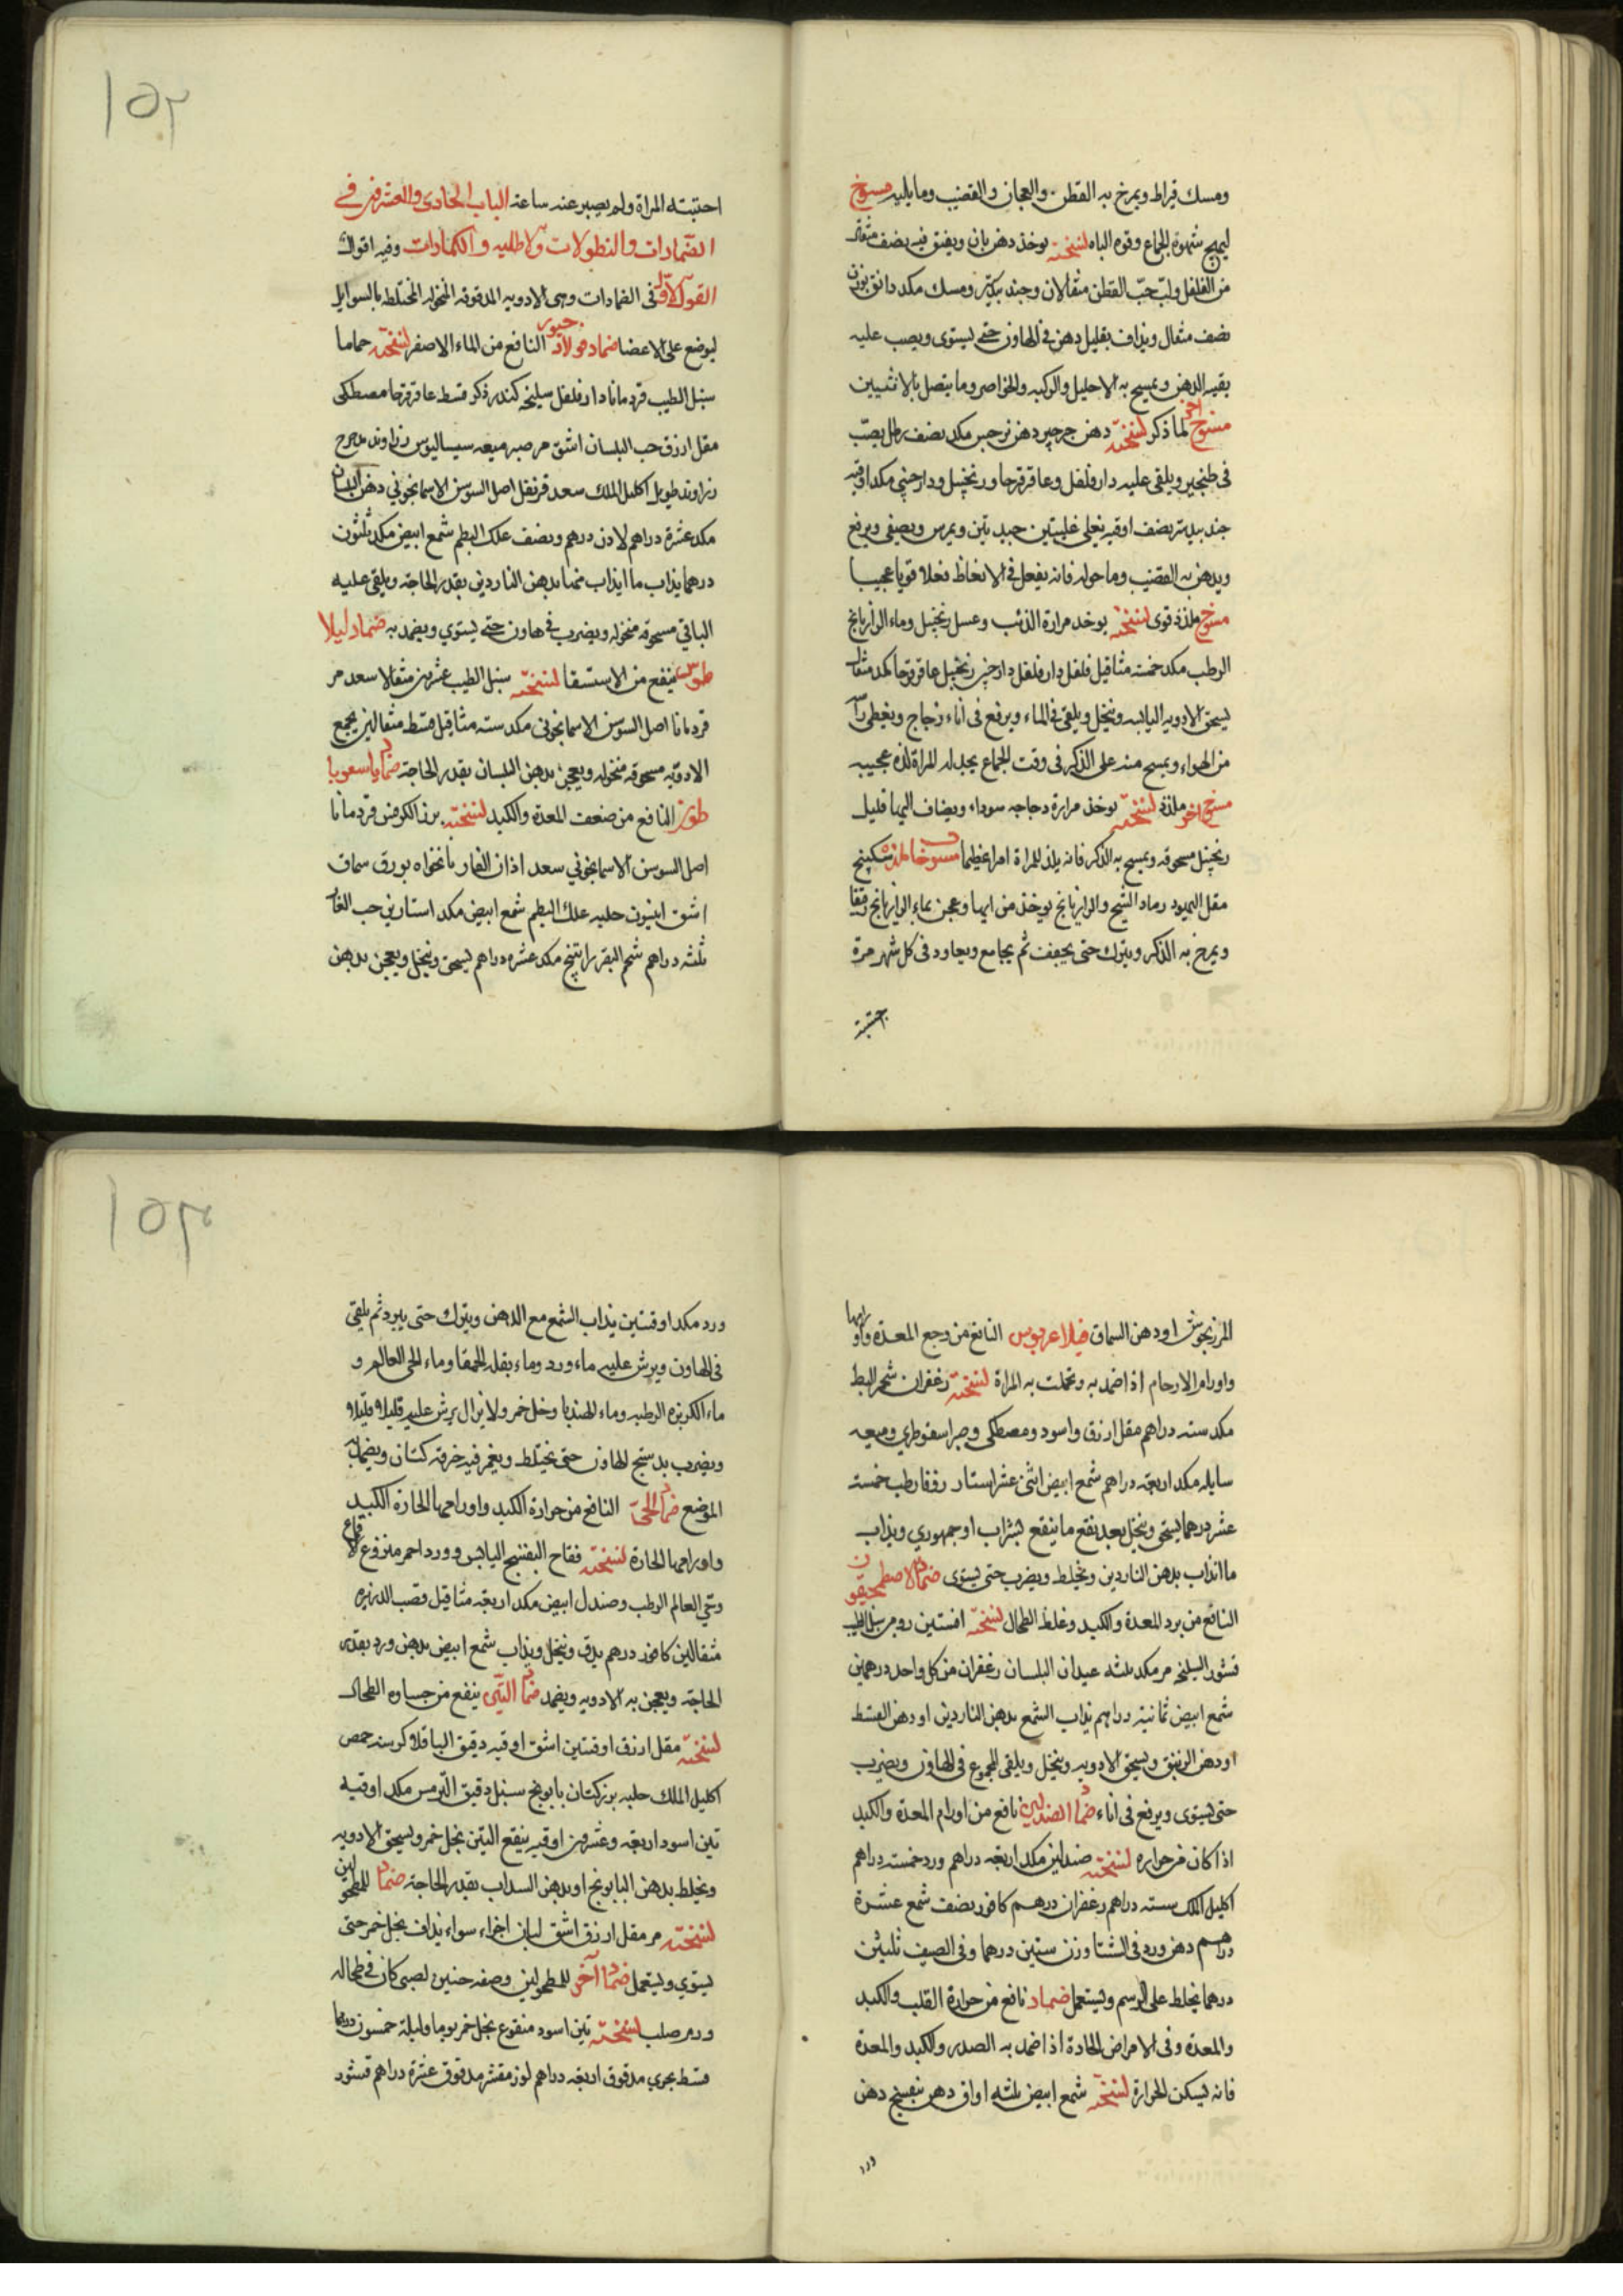 ومسك قيراط ويمرخ به القطن والعجان والقضيب وما يليه مسوخ
ليهيج شهوة الجماع وقوه الباه نسخته يوخذ دهن بان ويفتق فيه نصف مثقال
من الفلفل ولب حب القطن مثقالان وجند بيدستر ومسك مكد دانق
نصف مثقال ويداف بقليل دهن فى الهاون حتى يستوى ويصب عليه
بقيه الدهن ويمسح به الاحليل والركبه والخواصر وما يتصل بالانثيين
مسوخ اخر لما ذكر نسخته دهن جرجير دهن نرجس مكد نصف رطل يصب
فى طنجير ويلقى عليه دارفلفل وعاقرقرحا وزنجبيل ودارصينى مكد اوقيه
جند بيدستر نصف اوقيه يغلى غليتين جيدتين ويمرس ويصفى ويرفع
ويدهن به القضيب وما حوله فانه يفعل فى الانعاظ فعلا قويا عجيبا
مسوخ ملذذ قوى نسخته يوخذ مرارة الذئب وعسل زنجبيل وماء الرازيانج
الرطب مكد خمسة مثاقيل فلفل دارفلفل دارصينى زنجبيل عاقرقرحا مكد مثقال
يسحق الادويه اليابسه وينخل ويلقى فى الماء ويرفع فى اناء زجاج ويغطى راسه
من الهواء ويمسح منه على الذكر فى وقت الجماع يجد له المراة لذه عجيبه
مسوخ اخر ملذذ نسخته يوخذ مرارة دجاجه سوداء ويضاف اليها قليل
زنجبيل مسحوقه ويمسح به الذكر فانه يلذ للمراة امرا عظيما سكبينج
مقل اليهود رماد الشيح والرازيانج يوخذ من ايها وعجن بماء الرازيانج
ويمرخ به الذكر ويترك حتى يجفف ثم يجامع ويعاود فى كل شهر مرة
احتبته
١٥٢
احتبته المراة ولم يصبر عنه ساعة الباب الحادى والعشرون فى
الضمادات والنطولات والاطليه والكمادات وفيه اقوال
القول الاول فى الضمادات وهى الادويه المدقوقه المنخوله المختلطه بالسوايل
ليوضع على الاعضا ضماد النافع من الماء الاصفر نسخته حماما
سنبل الطيب قردمانا دارفلفل سليخه كندر ذكر قسط عاقرقرحا مصطكى
مقل ازرق حب البلسان اشق مر صبر ميعه سيساليوس زراوند مدحرج
زراوند طويل اكليل الملك سعد قرنفل اصل السوسن الاسمانجونى دهن البلسان
مكد عشرة دراهم لادن درهم ونصف علك البطم شمع ابيض مكد ثلثون
درهما يذاب ما ايذاب منها بدهن الناردين بقدر الحاجة ويلقى عليه
الباقى مسحوقه منخوله ويضرب فى هاون حتى يستوي ويضمد به ضماد ايلا
طوس ينفع من الاستسقا نسخته سنبل الطيب عشرين مثقالا سعد مر
قردمانا اصل السوسن الاسمانجونى مكد ستة مثاقيل قسط مثقالين يجمع
الادويه مسحوقه منخوله ويعجن بدهن البلسان بقدر الحاجة
النافع من ضعف المعدة والكبد نسخته بزر الكرفس قردمانا
اصل السوسن الاسمانجوني سعد اذان الفار نانخواه بورق سماق
اشق انيسون حلبه علك البطم شمع ابيض مكد استارين حب الغار
ثلثه دراهم شحم البقر راتينج مكد عشره دراهم يسحق وينخل ويعجن بدهن
المرزنجوش او دهن السماق النافع من وجع المعدة واورامها
واورام الارحام اذا ضمد به وتحملت به المراة نسخته زعفران شحم البط
مكد سته دراهم مقل ازرق واسود ومصطكى وصبر اسقوطري وميعه
سايله مكد اربعة دراهم شمع ابيض اثنى عشر استار زوفا رطب خمسة
عشر درهما يسحق وينخل بعد نقع ما ينقع بشراب او جمهوري ويذاب
ما انذاب بدهن الناردين ويخلط ويضرب حتى يستوى ضماد الاصطمخيقون
النافع من برد المعدة والكبد وغلظ الطحال نسخته افسنتين رومى سنبل الطيب
قشور السليخه مر مكد ثلثه عيدان البلسان زعفران من كل واحد درهمين
شمع ابيض ثمانية دراهم يذاب الشمع بدهن الناردين او دهن القسط
او دهن الزنبق ويسحق الادويه وينخل ويلقى المجموع فى الهاون ويضرب
حتى يستوى ويرفع فى اناء ضماد الصندلين نافع من اورام المعدة والكبد
اذا كان من حراره نسخته صندلين مكد اربعه دراهم ورد خمسة دراهم
اكليل الملك سته دراهم زعفران درهم كافور نصف شمع عشرة
دراهم دهن ورد فى الشتا وزن ستين درهما وفى الصيف ثلثين
درهما يخلط على الرسم ويستعمل ضماد نافع من حرارة القلب والكبد
والمعدة وفى الامراض الحادة اذا ضمد به الصدر والكبد والمعدة
فانه يسكن الحرارة نسخته شمع ابيض ثلثه اواق دهن بنفسج دهن
ورد
١٥٣
ورد مكد اوقيتين يذاب الشمع مع الدهن ويترك حتى يبرد ثم يلقى
فى الهاون ويرش عليه ماء ورد وماء بقله الحمقا وماء الحى العالم و
ماء الكزبره الرطبه وماء الهندبا وخل خمر ولا يزال يرش عليه قليلا قليلا
ويضرب بدستج الهاون حتى يختلط ويغمر فيه خرقه كتان ويضمد به
الموضع ضماد النافع من حرارة الكبد واورامها الحارة الكبد
واورامها الحارة نسخته فقاح البنفسج اليابس وورد احمر منزوع الاقماع
وحي العالم الرطب وصندل ابيض مكد اربعة مثاقيل قصب الذريره
مثقالين كافور درهم يدق وينخل ويذاب شمع ابيض بدهن ورد بقدر
الحاجة ويعجن به الادويه ويضمد ضماد التين ينفع من جساوه الطحال
نسخته مقل ازرق اوقيتين اشق اوقيه دقيق الباقلا كرسنه حمص
اكليل الملك حلبه بزركتان بابونج سنبل دقيق الترمس مكد اوقيه
تين اسود اربعة وعشرون اوقيه ينقع التين بخل خمر ويسحق الادويه
ويخلط بدهن البابونج او بدهن السداب بقدر الحاجة ضماد للمطحولين
نسخته مر مقل ازرق اشق لبان اجزاء سواء يداف بخل خمر حتى
يستوي ويستعمل ضماد آخر للمطحولين وصفه حنين لصبى كان فى طحاله
ورم صلب نسخته تين اسود منقوع بخل خمر يوما وليلة خمسون درهما
قسط بحري مدقوق اربعه دراهم لوز مقشر مدقوق عشرة دراهم قشور